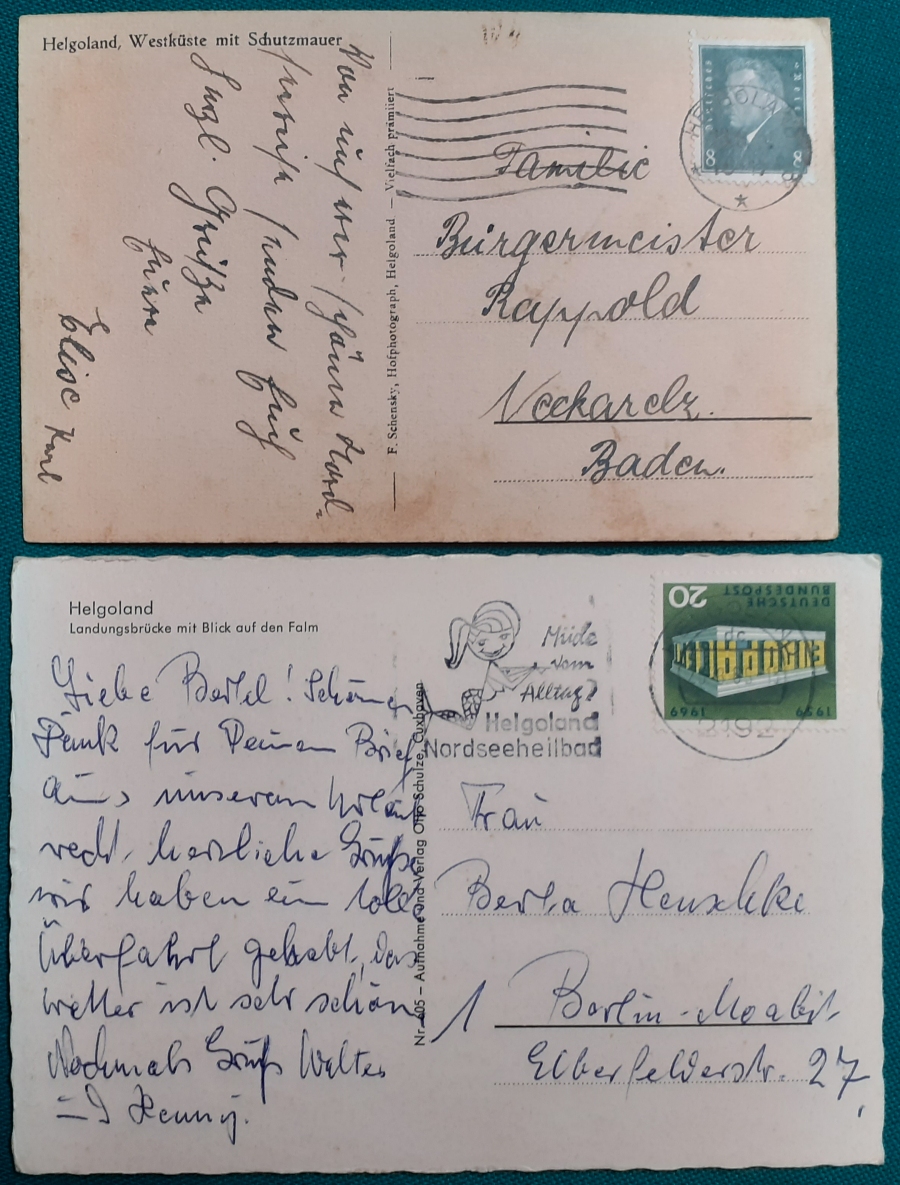 Helgoland, Westküste mit Schutzmauer
Von unserer schönen Nord-
seereise senden Euch
herzl. Grüße
Eure
Elise Karl
F. Schensky, Hofphotograph, Helgoland — Vielfach prämiiert
8 8
HELGOLAND
Familie
Bürgermeister
Rappold
Neckarelz.
Baden.
Helgoland
Landungsbrücke mit Blick auf den Falm
Liebe Bertel! Schönen
Dank für Deinen Brief
aus unserem Urlaub
recht herzliche Grüße
wir haben ein tolle
Überfahrt gehabt, das
Wetter ist sehr schön
Nochmals Gruß Walter
Henny.
Nr. 405 – Aufnahme und Verlag Otto Schulze, Cuxhaven
Müde
vom
Alltag?
Helgoland
Nordseeheilbad
DEUTSCHE
BUNDESPOST
20
EUROPA
1959 1969
2192
Frau
Berta Henschke
1 Berlin-Moabit
Elberfelderstr. 27